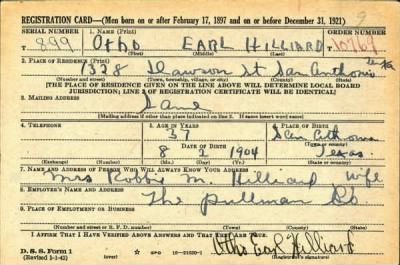 REGISTRATION CARD—(Men born on or after February 17, 1897 and on or before December 31, 1921)
SERIAL NUMBER 1. NAME (Print) ORDER NUMBER
T 899 Otho EARL HILLIARD
(First) (Middle) (Last)
2. PLACE OF RESIDENCE (Print)
1328 Dawson St San Antonio
(Number and street) (Town, township, village, or city) (County) (State)
[THE PLACE OF RESIDENCE GIVEN ON THE LINE ABOVE WILL DETERMINE LOCAL BOARD
JURISDICTION; LINE 2 OF REGISTRATION CERTIFICATE WILL BE IDENTICAL]
3. MAILING ADDRESS
Same
[Mailing address if other than place indicated on line 2. If same insert word same]
4. TELEPHONE 5. AGE IN YEARS 6. PLACE OF BIRTH
37 San Antonio
DATE OF BIRTH (Town or county)
8 1904 Texas
(Exchange) (Number) (Mo.) (Day) (Yr.) (State or country)
7. NAME AND ADDRESS OF PERSON WHO WILL ALWAYS KNOW YOUR ADDRESS
Mrs Robbie M. Hilliard wife
8. EMPLOYER'S NAME AND ADDRESS
The pullman Co
9. PLACE OF EMPLOYMENT OR BUSINESS
(Number and street or R. F. D. number) (Town) (County) (State)
I AFFIRM THAT I HAVE VERIFIED ABOVE ANSWERS AND THAT THEY ARE TRUE.
D. S. S. Form 1
(Revised 1-1-42) (over) Otho Earl Hilliard
(Registrant's signature)